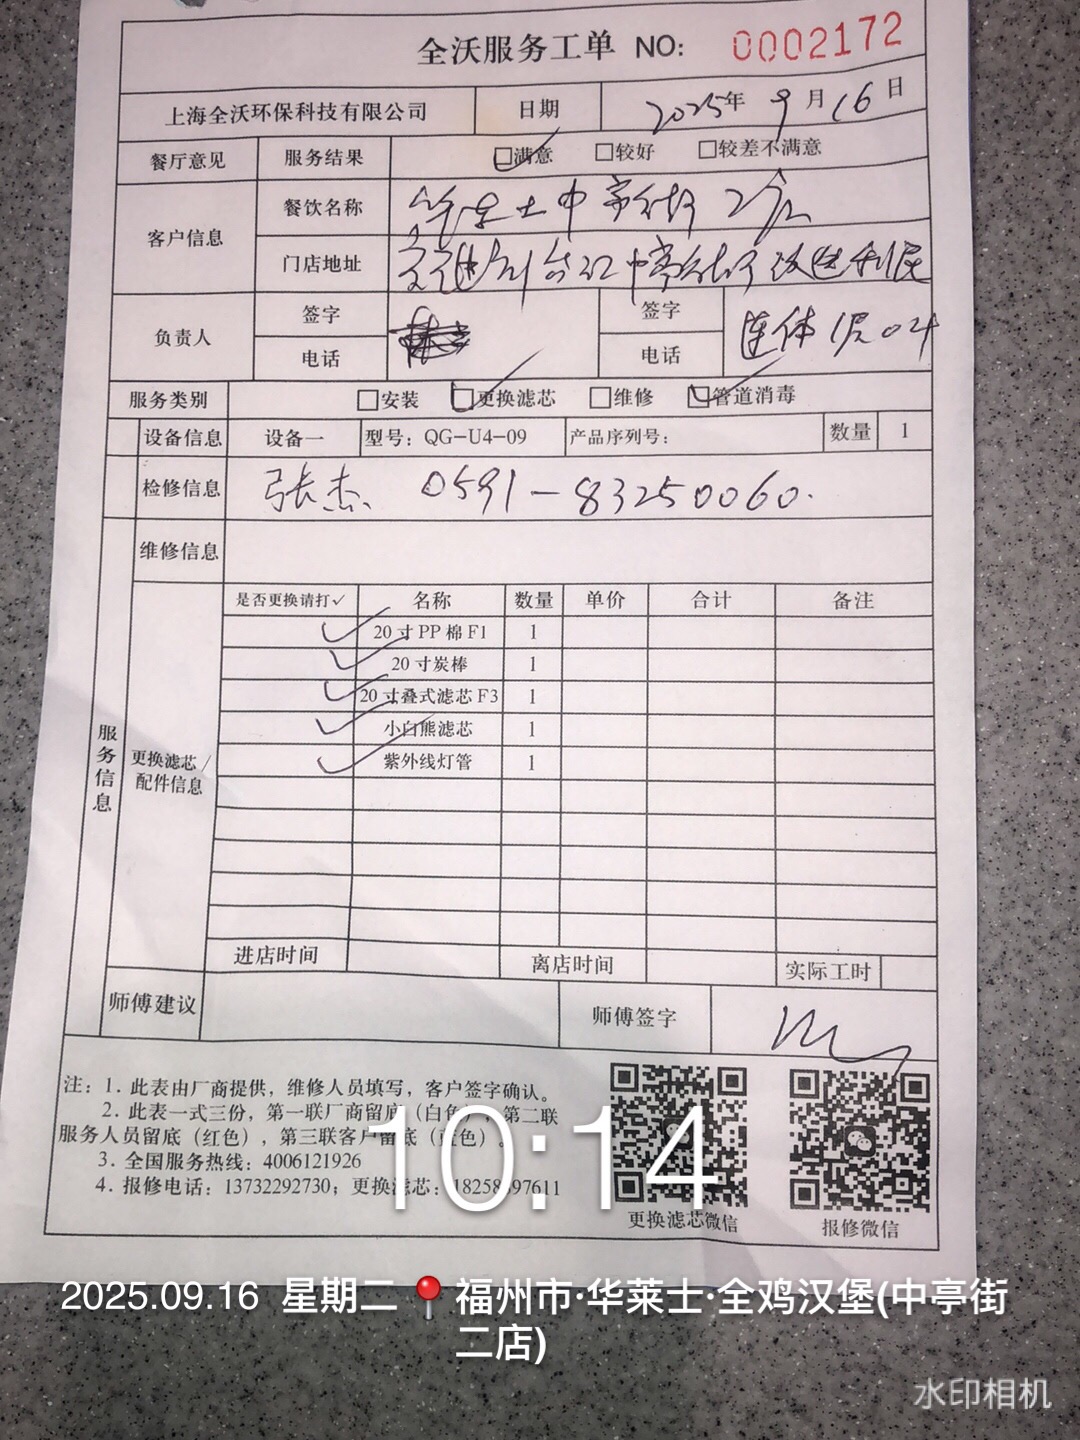 全沃服务工单 NO: 0002172
上海全沃环保科技有限公司 日期 2025年 9月16日
餐厅意见 服务结果 □满意 □较好 □较差不满意
客户信息 餐饮名称 华莱士中亭街2店
门店地址 台江中亭街
负责人 签字 签字
电话 电话
服务类别 □安装 □更换滤芯 □维修 □管道消毒
设备信息 设备一 型号：QG-U4-09 产品序列号： 数量 1
检修信息 张杰 0591-83250060.
维修信息
是否更换请打✓ 名称 数量 单价 合计 备注
✓ 20寸PP棉F1 1
✓ 20寸炭棒 1
✓ 20寸叠式滤芯F3 1
✓ 小白熊滤芯 1
✓ 紫外线灯管 1
服务信息
更换滤芯/
配件信息
进店时间 离店时间 实际工时
师傅建议 师傅签字
注：1. 此表由厂商提供，维修人员填写，客户签字确认。
2. 此表一式三份，第一联厂商留底（白色），第二联
服务人员留底（红色），第三联客户留底（蓝色）。
3. 全国服务热线：4006121926
4. 报修电话：13732292730；更换滤芯：
更换滤芯微信 报修微信
10:14
2025.09.16 星期二 福州市·华莱士·全鸡汉堡(中亭街
二店)
水印相机